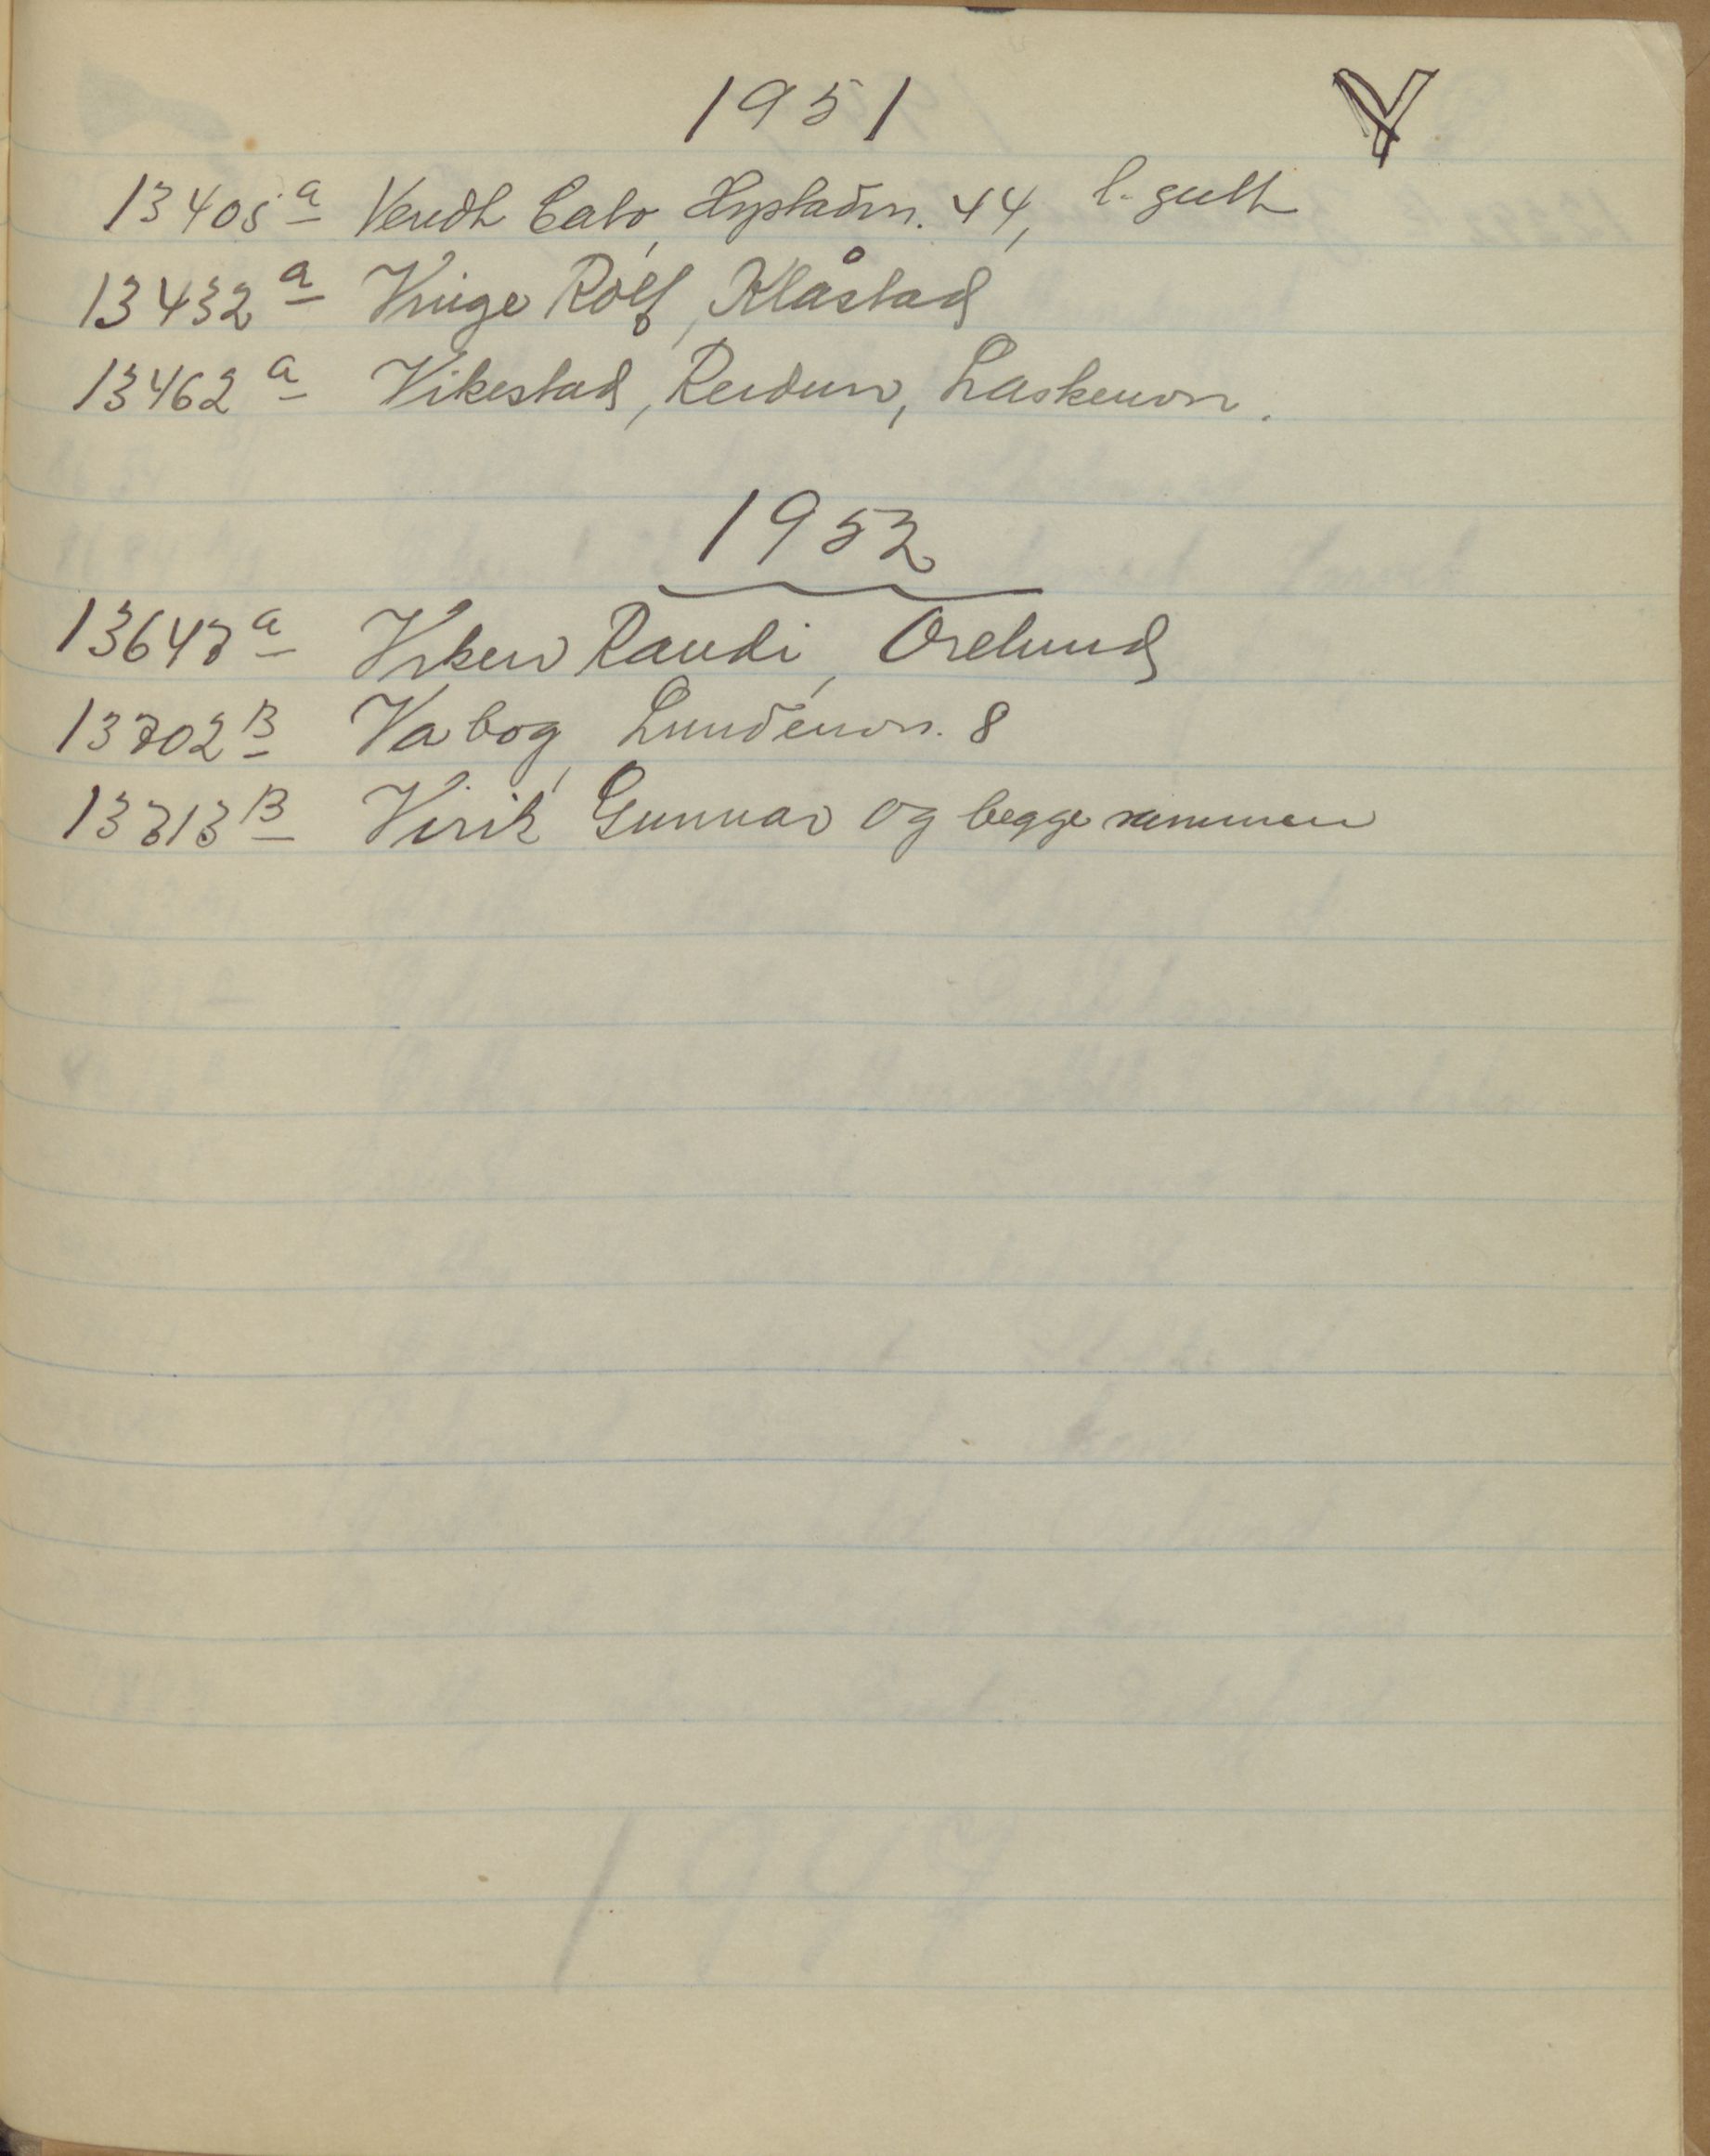 1951 V
13405 a Vendt Cato, Hystadvn. 44, l. gutt
13432 a Vinge Rolf, Klåstad
13462 a Vikestad, Reidun, Laskenvn.
1952
13647 a Viken Randi, Orelund
13702 B Vabog, Lundenvn. 8
13713 B Virik, Gunnar og begge sammen